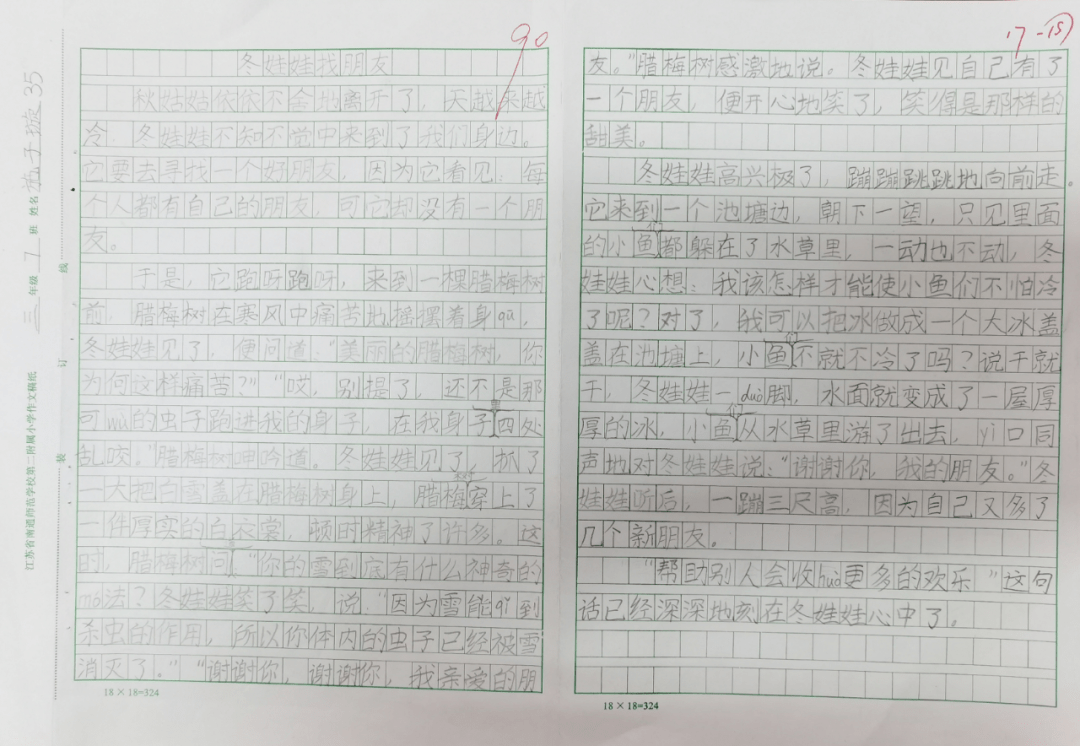 90
冬娃娃找朋友
秋姑姑依依不舍地离开了，天越来越
冷，冬娃娃不知不觉中来到了我们身边。
它要去寻找一个好朋友，因为它看见：每
个人都有自己的朋友，可它却没有一个朋
友。
于是，它跑呀跑呀，来到一棵腊梅树
前，腊梅树在寒风中痛苦地摇摆着身qū，
冬娃娃见了，便问道：“美丽的腊梅树，你
为何这样痛苦？”“哎，别提了，还不是那
可wù的虫子跑进我的身子，在我身子里四处
乱咬。”腊梅树呻吟道。冬娃娃见了，抓了
一大把白雪盖在腊梅树身上，腊梅树穿上了
一件厚实的白衣裳，顿时精神了许多。这
时，腊梅树问：“你的雪到底有什么神奇的
mó法？冬娃娃笑了笑，说：“因为雪能qǐ到
杀虫的作用，所以你体内的虫子已经被雪
消灭了。”“谢谢你，谢谢你，我亲爱的朋
18×18=324
17-15
友。”腊梅树感激地说。冬娃娃见自己有了
一个朋友，便开心地笑了，笑得是那样的
甜美。
冬娃娃高兴极了，蹦蹦跳跳地向前走。
它来到一个池塘边，朝下一望，只见里面
的小鱼们都躲在了水草里，一动也不动，冬
娃娃心想：我该怎样才能使小鱼们不怕冷
了呢？对了，我可以把冰做成一个大冰盖
盖在池塘上，小鱼们不就不冷了吗？说干就
干，冬娃娃一duò脚，水面就变成了一层厚
厚的冰，小鱼们从水草里游了出去，yì口同
声地对冬娃娃说：“谢谢你，我的朋友。”冬
娃娃听后，一蹦三尺高，因为自己又多了
几个新朋友。
“帮助别人会收huò更多的欢乐”这句
话已经深深地刻在冬娃娃心中了。
18×18=324
江苏省南通师范学校第二附属小学作文稿纸
三 年级 7 班 姓名 35
装 订 线